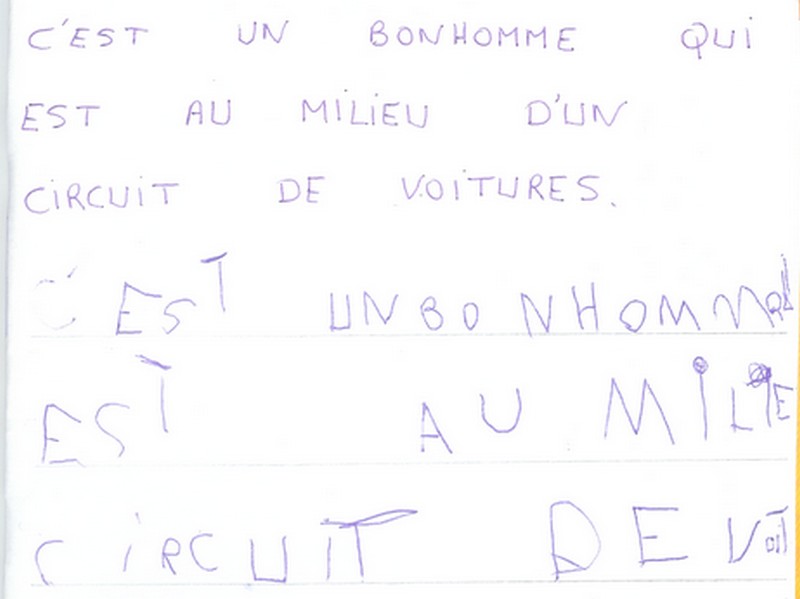 C'EST UN BONHOMME QUI
EST AU MiLiEU D'UN
CiRCUiT DE VOiTURES.
C'EST UN BONHOMM
EST AU MiLiE
CiRCUiT DE Voit